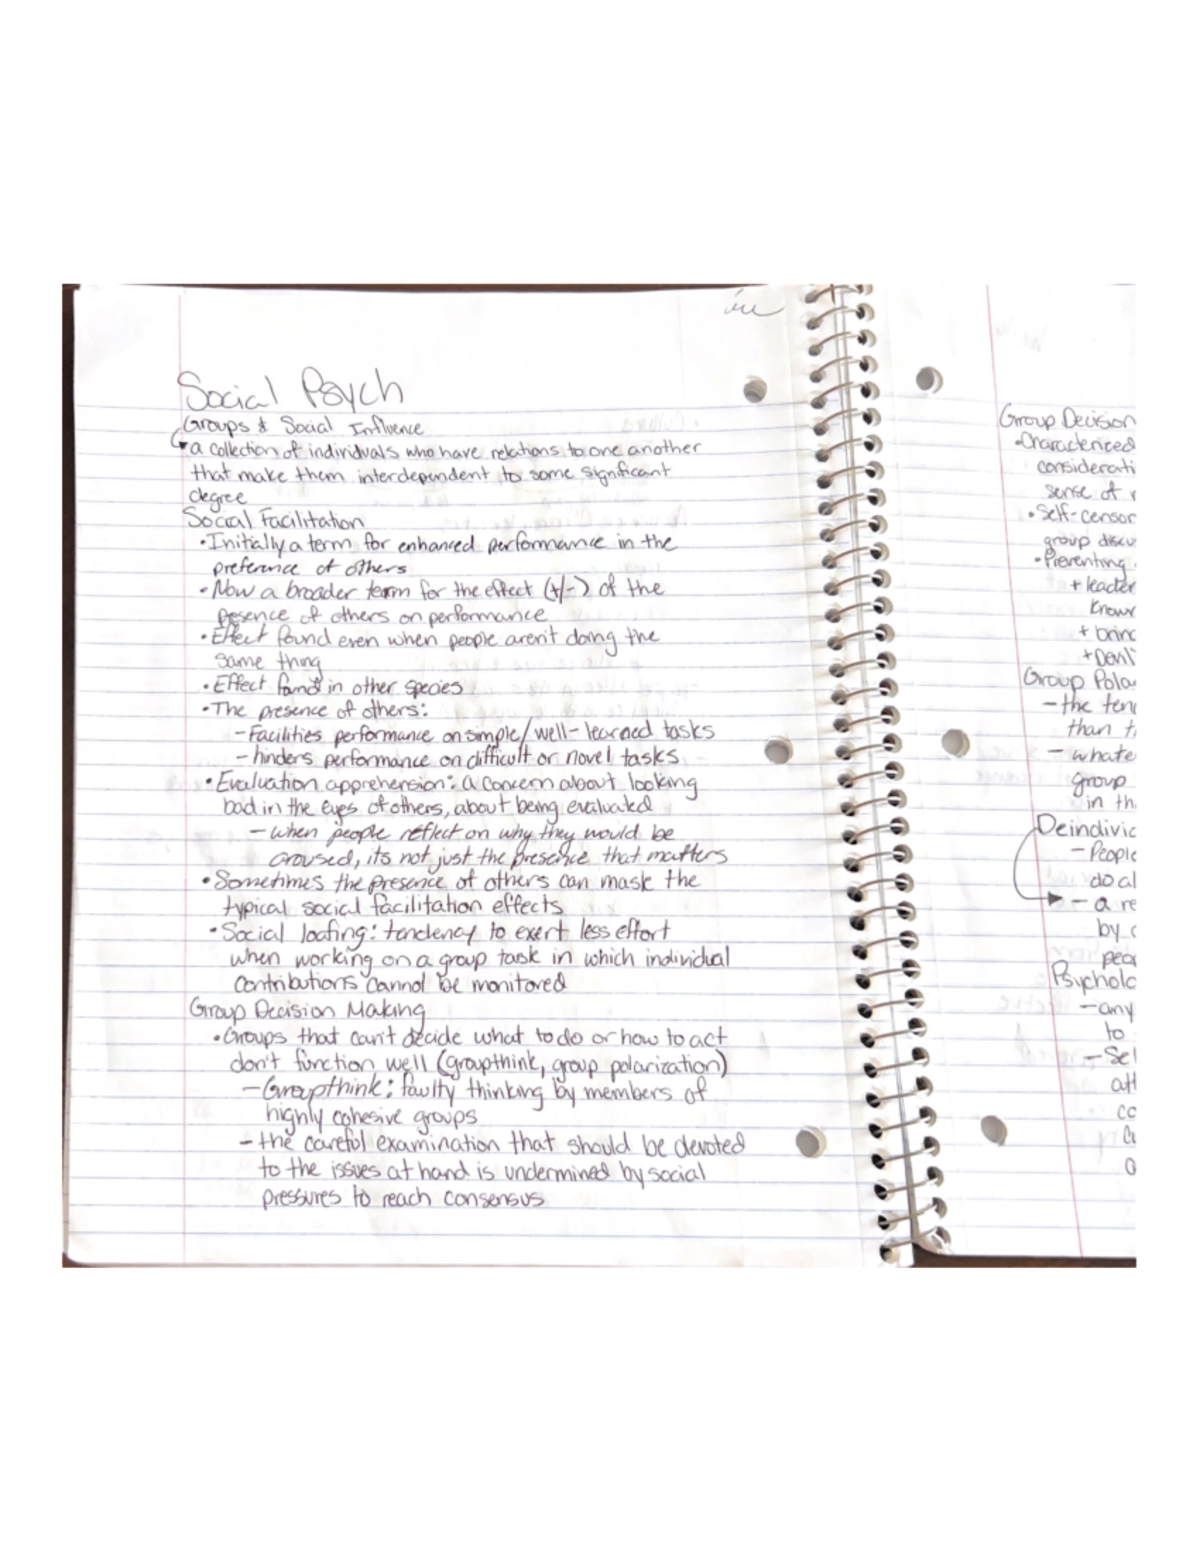 Social Psych
Groups & Social Influence
a collection of individuals who have relations to one another
that make them interdependent to some significant
degree
Social Facilitation
•Initially a term for enhanced performance in the
preference of others
•Now a broader term for the effect (+/-) of the
presence of others on performance
•Effect found even when people aren't doing the
same thing
•Effect found in other species
•The presence of others:
-Facilities performance on simple/well-learned tasks
-hinders performance on difficult or novel tasks
•Evaluation apprehension: a concern about looking
bad in the eyes of others, about being evaluated
-when people reflect on why they would be
aroused, its not just the presence that matters
•Sometimes the presence of others can mask the
typical social facilitation effects
•Social loafing: tendency to exert less effort
when working on a group task in which individual
contributions cannot be monitored
Group Decision Making
•Groups that can't decide what to do or how to act
don't function well (groupthink, group polarization)
-Groupthink: faulty thinking by members of
highly cohesive groups
-the careful examination that should be devoted
to the issues at hand is undermined by social
pressures to reach consensus
Group Decision
•Characterized
considerati
sense of
•Self-censor
group discu
•Preventing
+leader
know
+brin
+Devil
Group Pola
-the ten
than t
-whate
group
in th
Deindivic
-People
do al
-a re
by
peo
Psycholo
-any
to
-Sel
att
co